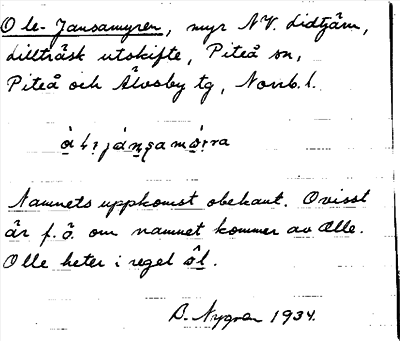 Ole-Jansamyren, myr N.V. Lidtjärn,
Lillträsk utskifte, Piteå sn,
Piteå och Älvsby tg, Norrb. l.
Namnets uppkomst obekant. Ovisst
är f. ö. om namnet kommer av Olle.
Olle heter i regel ôl.
B. Nygren 1934.